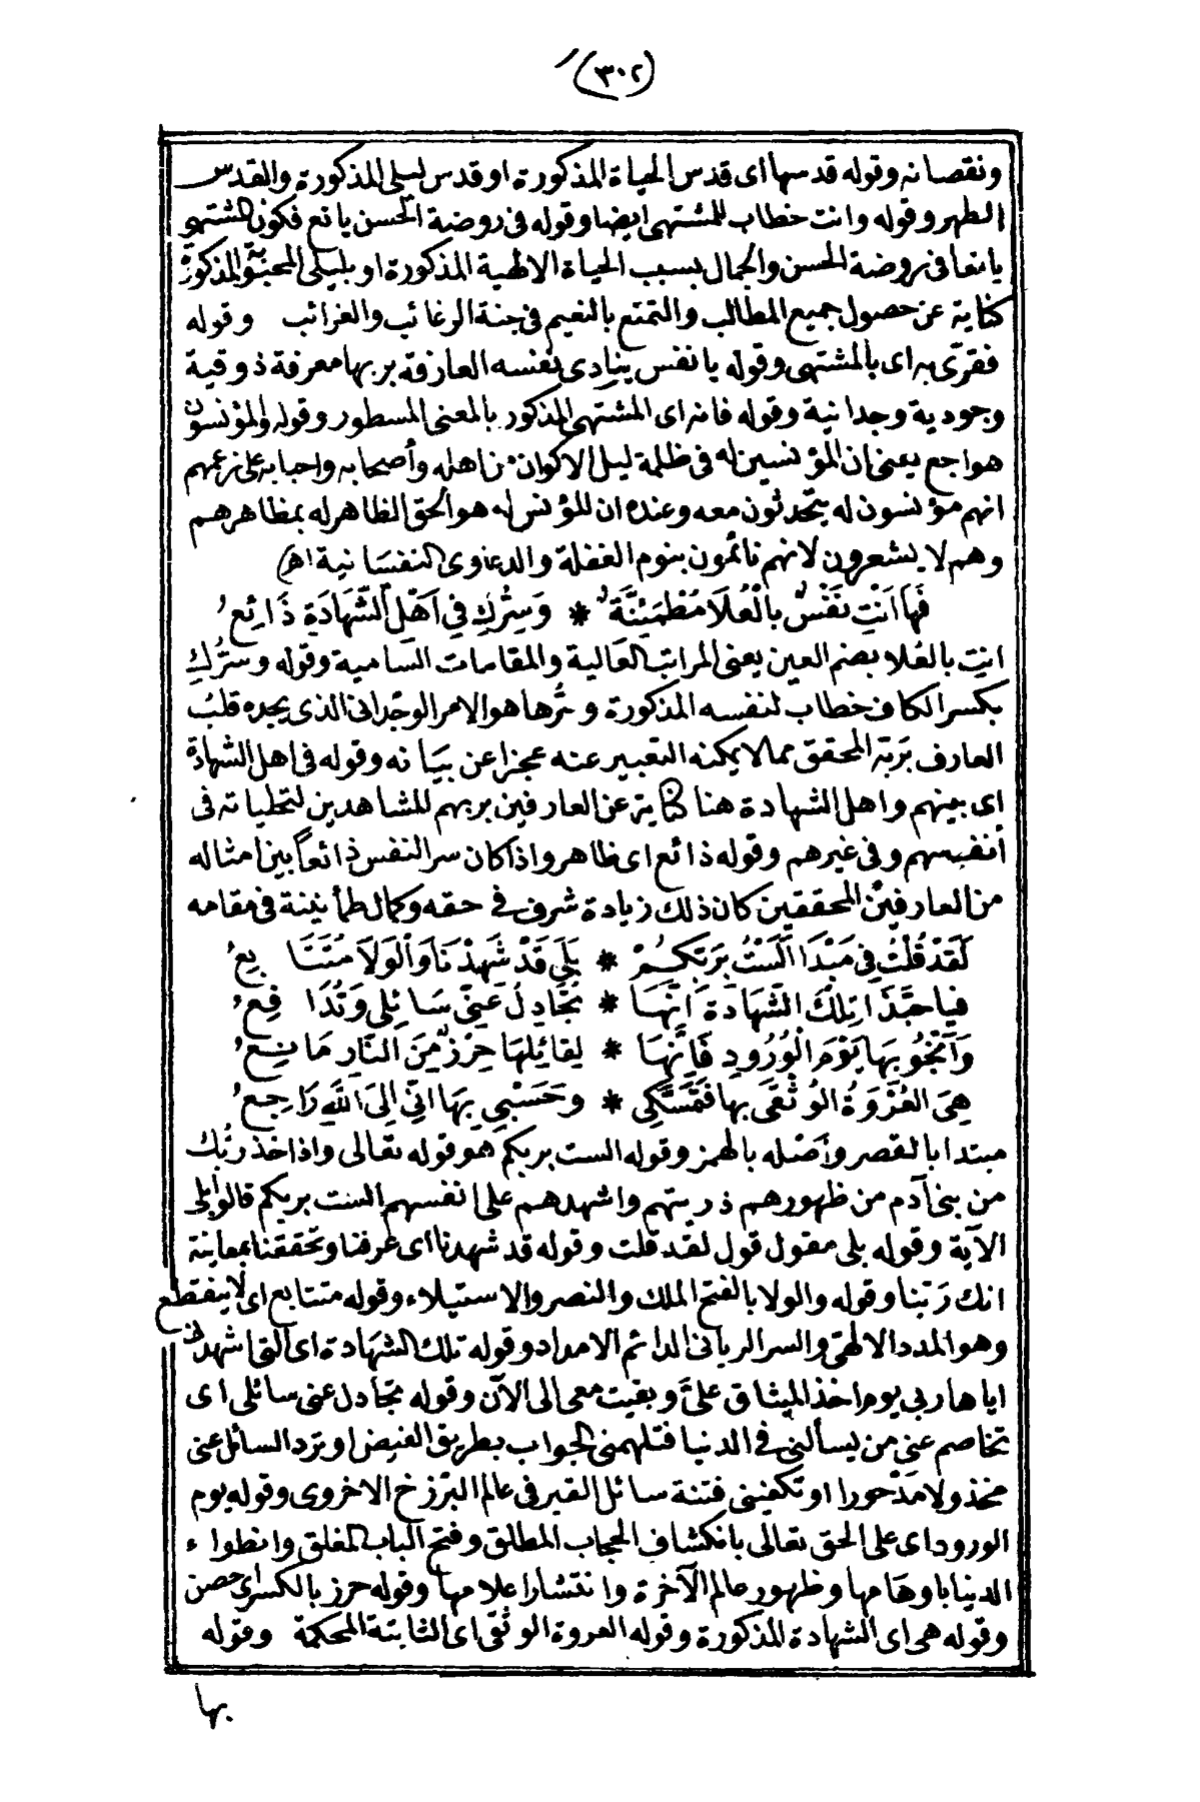 (٣٠٢)
ونقصانه وقوله قدسها اى قدس الحياة المذكورة او قدس ليلى المذكورة والقدس
الطهر وقوله وانت خطاب للمشتهى ايضا وقوله فى روضة الحسن يانع فكون المشتهى
يانعا فى روضة الحسن والجمال بسبب الحياة الالهية المذكورة او بليلى المحبوبة المذكورة
كناية عن حصول جميع المطالب والتمتع بالنعيم فى جنة الرغائب والغرائب وقوله
فقرّى به اى بالمشتهى وقوله يا نفس ينادى نفسه العارفة بربها معرفة ذوقية
وجودية وجدانية وقوله فانه اى المشتهى المذكور بالمعنى المسطور وقوله والمؤنسون
هواجع يعنى ان المؤنسين له فى ظلمة ليل الاكوان من اهله وأصحابه واحبابه على زعمهم
انهم مؤنسون له يتحدثون معه وعنده ان المؤنس له هو الحق الظاهر له بمظاهرهم
وهم لا يشعرون لانهم نائمون بنوم الغفلة والدعاوى النفسانية اهـ
فَهَا اَنْتِ نَفْسٌ بِالْعُلَا مُطْمَئِنَّةٌ * وَسِرُّكِ فِى اَهْلِ الشَّهَادَةِ ذَائِعُ
انتِ بالعُلا بضم العين يعنى المراتب العالية والمقامات السامية وقوله وسرُّكِ
بكسر الكاف خطاب لنفسه المذكورة وسرُّها هو الامر الوجدانى الذى يجده قلبُ
العارف بربّه المحقق مما لا يمكنه التعبير عنه عجزا عن بيانه وقوله فى اهل الشهادة
اى بينهم واهل الشهادة هنا كناية عن العارفين بربهم للمشاهدين لتجلياته فى
أنفسهم وفى غيرهم وقوله ذائع اى ظاهر واذا كان سر النفس ذائعاً بين امثاله
من العارفين المحققين كان ذلك زيادة شرف فى حقه وكمال طمأنينة فى مقامه
لَقَدْ قُلْتِ فِى مَبْدَا اَلَسْتُ بِرَبِّكُمْ * بَلَى قَدْ شَهِدْنَا وَالْوَلَا مُتَتَابِعُ
فيا حبَّذَا تِلْكَ الشَّهَادَةَ اِنَّهَا * تُجَادِلُ عَنِّى سَائِلِى وَتُدَافِعُ
وَاَنْجُو بِهَا يَوْمَ الْوُرُودِ فَاِنَّهَا * لِقَائِلِهَا حِرْزٌ مِنَ النَّارِ مَانِعُ
هِىَ الْعُرْوَةُ الْوُثْقَى بها فَتَمَسَّكِى * وَحَسْبِى بِهَا اَنِّى اِلَى اللّٰهِ رَاجِعُ
مبتدا بالقصر وأصله بالهمز وقوله الست بربكم هو قوله تعالى واذ اخذ ربُّك
من بنى آدم من ظهورهم ذريتهم واشهدهم على انفسهم الست بربكم قالوا بلى
الآية وقوله بلى مقول قول لقد قلت وقوله قد شهدنا اى عرفنا وتحققنا بمعاينة
انك ربّنا وقوله والولا بالفتح الملك والنصر والاستيلاء وقوله متتابع اى لا ينقطع
وهو المدد الالهىّ والسر الربانى الدائم الامداد وقوله تلك الشهادة اى التى اشهدنى
اياها ربى يوم اخذ الميثاق علىَّ وبقيت معى الى الآن وقوله تجادل عنى سائلى اى
تخاصم عنى من يسألنى فى الدنيا فتلهمنى الجواب بطريق الفيض او ترد السائل عنى
مخذولا مَدْحورا او تكفينى فتنة سائل القبر فى عالم البرزخ الاخروى وقوله يوم
الورود اى على الحق تعالى بانكشاف الحجاب المطلق وفتح الباب المغلق وانطواء
الدنيا باوهامها وظهور عالم الآخرة وانتشار اعلامها وقوله حرز بالكسر اى حصن
وقوله هى اى الشهادة المذكورة وقوله العروة الوثقى اى الثابتة المحكمة وقوله
بها